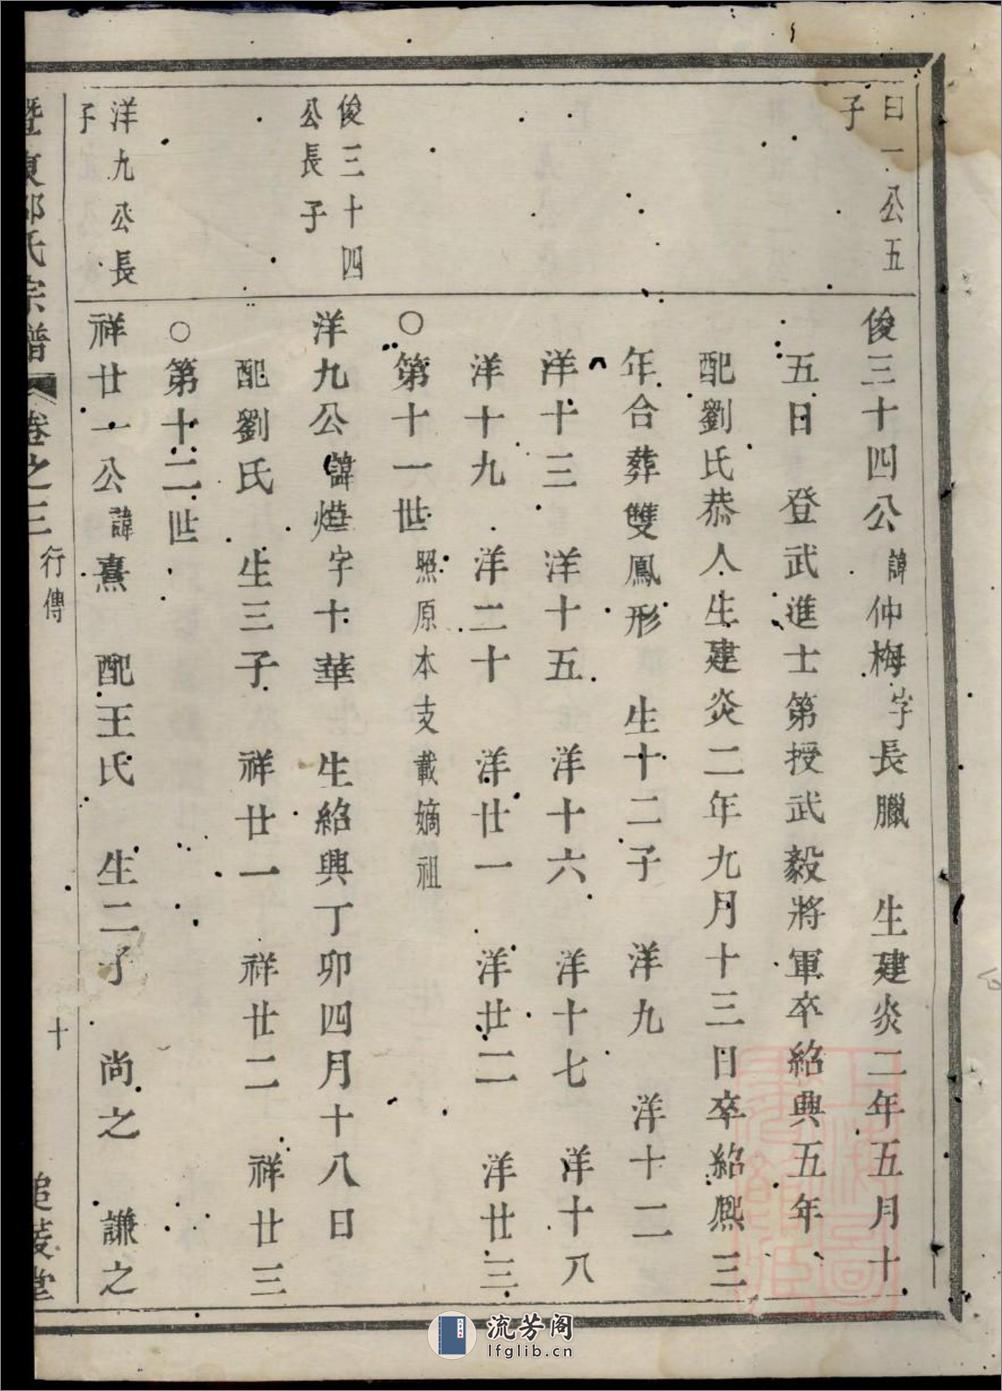 曰一公五
子
俊三十四公諱仲梅字長臘 生建炎二年五月十
五日 登武進士第授武毅將軍卒紹興五年
配劉氏恭人生建炎二年九月十三日卒紹熈三
年合葬雙鳳形 生十二子 洋九 洋十二
洋十三 洋十五 洋十六 洋十七 洋十八
洋十九 洋二十 洋廿一 洋廿二 洋廿三
○第十一世照原本支載嫡祖
俊三十四
公長子
洋九公諱字十華 生紹興丁卯四月十八日
配劉氏 生三子 祥廿一 祥廿二 祥廿三
○第十二世
洋九公長
子
祥廿一公諱熹 配王氏 生二子 尚之 謙之
暨東邱氏宗譜 卷之三 行傳 十 堂
流芳阁
lfglib.cn